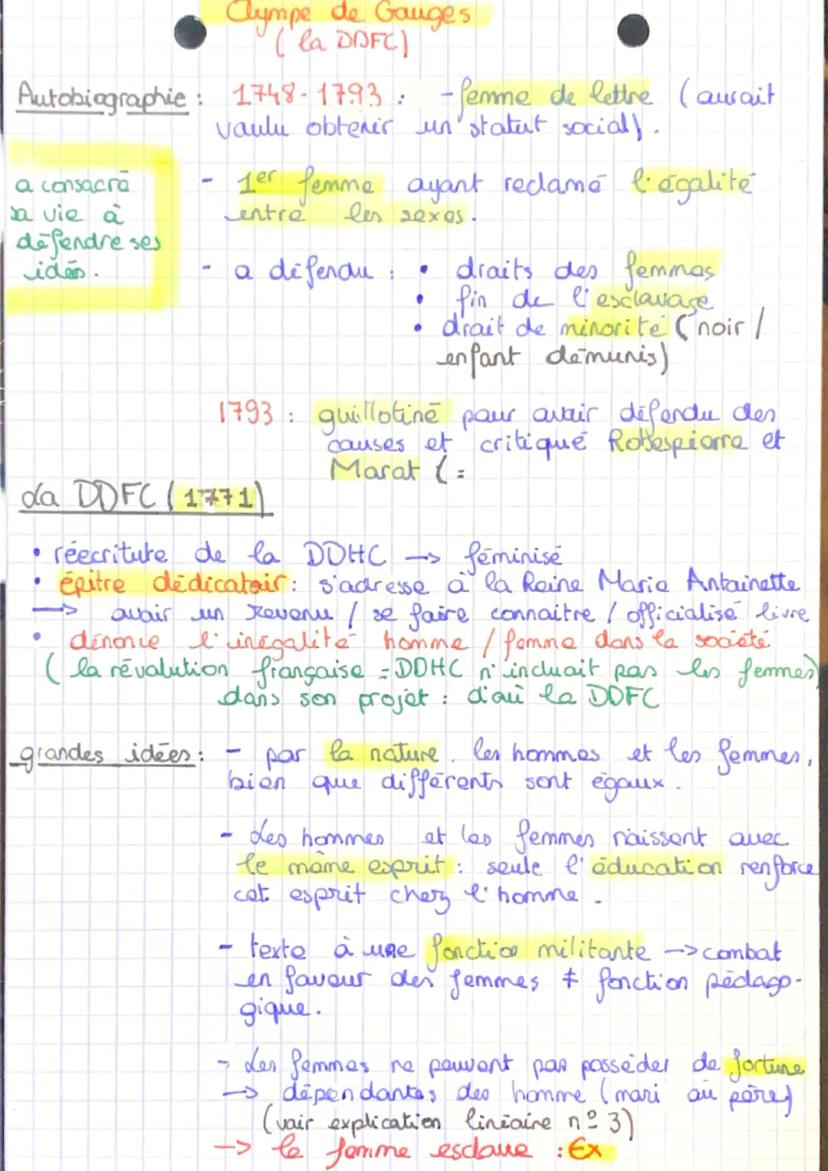 Olympe de Gouges
( la DDFC)
Autobiographie : 1748-1793 : - femme de lettre ( aurait
voulu obtenir un statut social).
a consacré
sa vie à
défendre ses
idés.
- 1er femme ayant reclamé l'égalité
entre les sexes.
- a défendu : • droits des femmes
• fin de l'esclavage
• droit de minorité ( noir /
enfant démunis)
1793 : guillotiné pour avoir défendu des
causes et critiqué Robespierre et
Marat ( =
La DDFC ( 1771)
• réecriture de la DDHC → féminisé
• épitre dédicatoir : s'adresse à la Reine Marie Antoinette
→ avoir un revenu / se faire connaitre / officialisé livre
• dénonce l'inégalité homme / femme dans la société
( la révolution française = DDHC n'incluait pas les femmes)
dans son projet : d'où la DDFC
grandes idées : - par la nature. les hommes et les femmes,
bien que différents sont égaux.
- Les hommes et les femmes naissent avec
le même esprit : seule l'éducation renforce
cet esprit chez l'homme.
- texte à une fonction militante → combat
en faveur des femmes ≠ fonction pédago-
gique.
- Les femmes ne peuvent pas posséder de fortune
→ dépendantes des homme ( mari ou père)
( voir explication linéaire n° 3)
→ le femme esclave : Ex